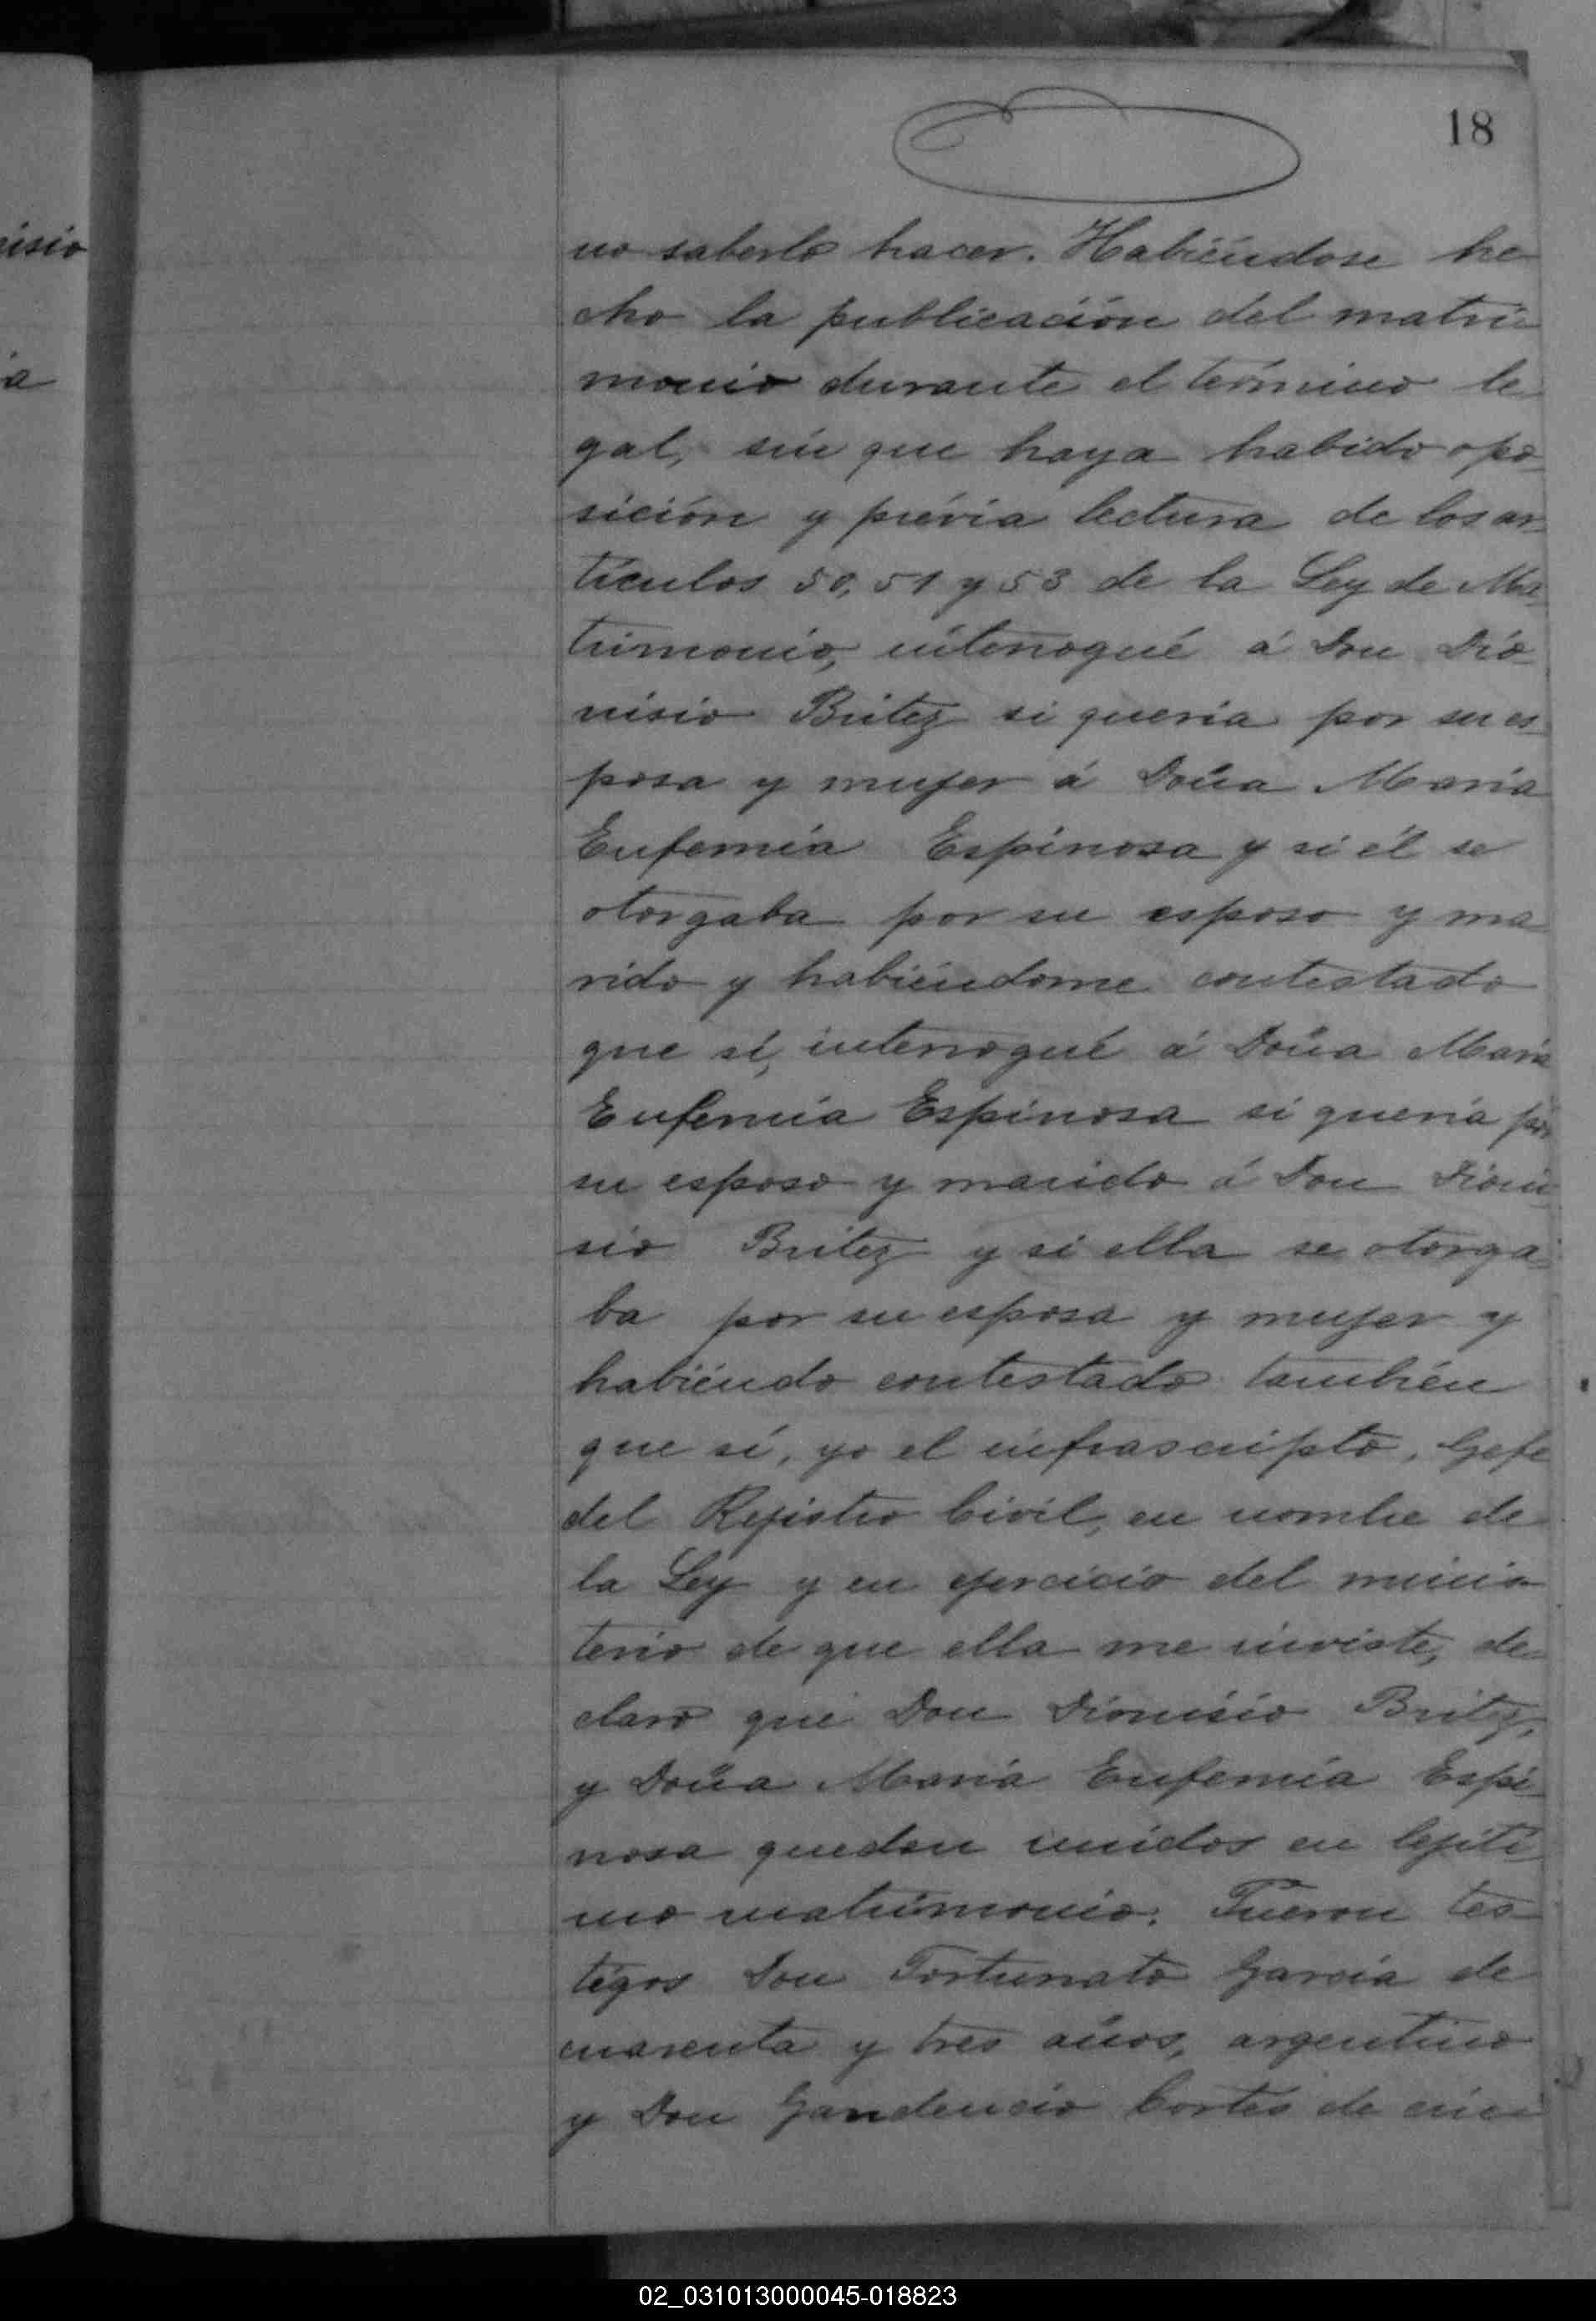 18
isio
a
no saberlo hacer. Habiéndose he
cho la publicación del matri
monio durante el término le
gal, sin que haya habido opo-
sición y prévia lectura de los ar-
tículos 50, 51 y 53 de la Ley de Ma-
trimonio, interrogué á Don Dio-
nisio Britez si queria por su es-
posa y mujer á Doña Maria
Eufemia Espinosa y si él se
otorgaba por su esposo y ma
rido y habiéndome contestado
que sí, interrogué á Doña Maria
Eufemia Espinosa si queria por
su esposo y marido á Don Dioni
sio Britez y si ella se otorga-
ba por su esposa y mujer y
habiéndo contestado también
que sí, yo el infrascripto, Gefe
del Rejistro Civil, en nombre de
la Ley y en ejercicio del minis
terio de que ella me inviste, de-
claro que Don Dionisio Britez,
y Doña Maria Eufemia Espi-
nosa quedan unidos en lejíti-
mo matrimonio. Fueron tes
tigos Don Fortunato Garcia de
cuarenta y tres años, argentino
y Don Gandencio Cortes de cin
02_031013000045-018823